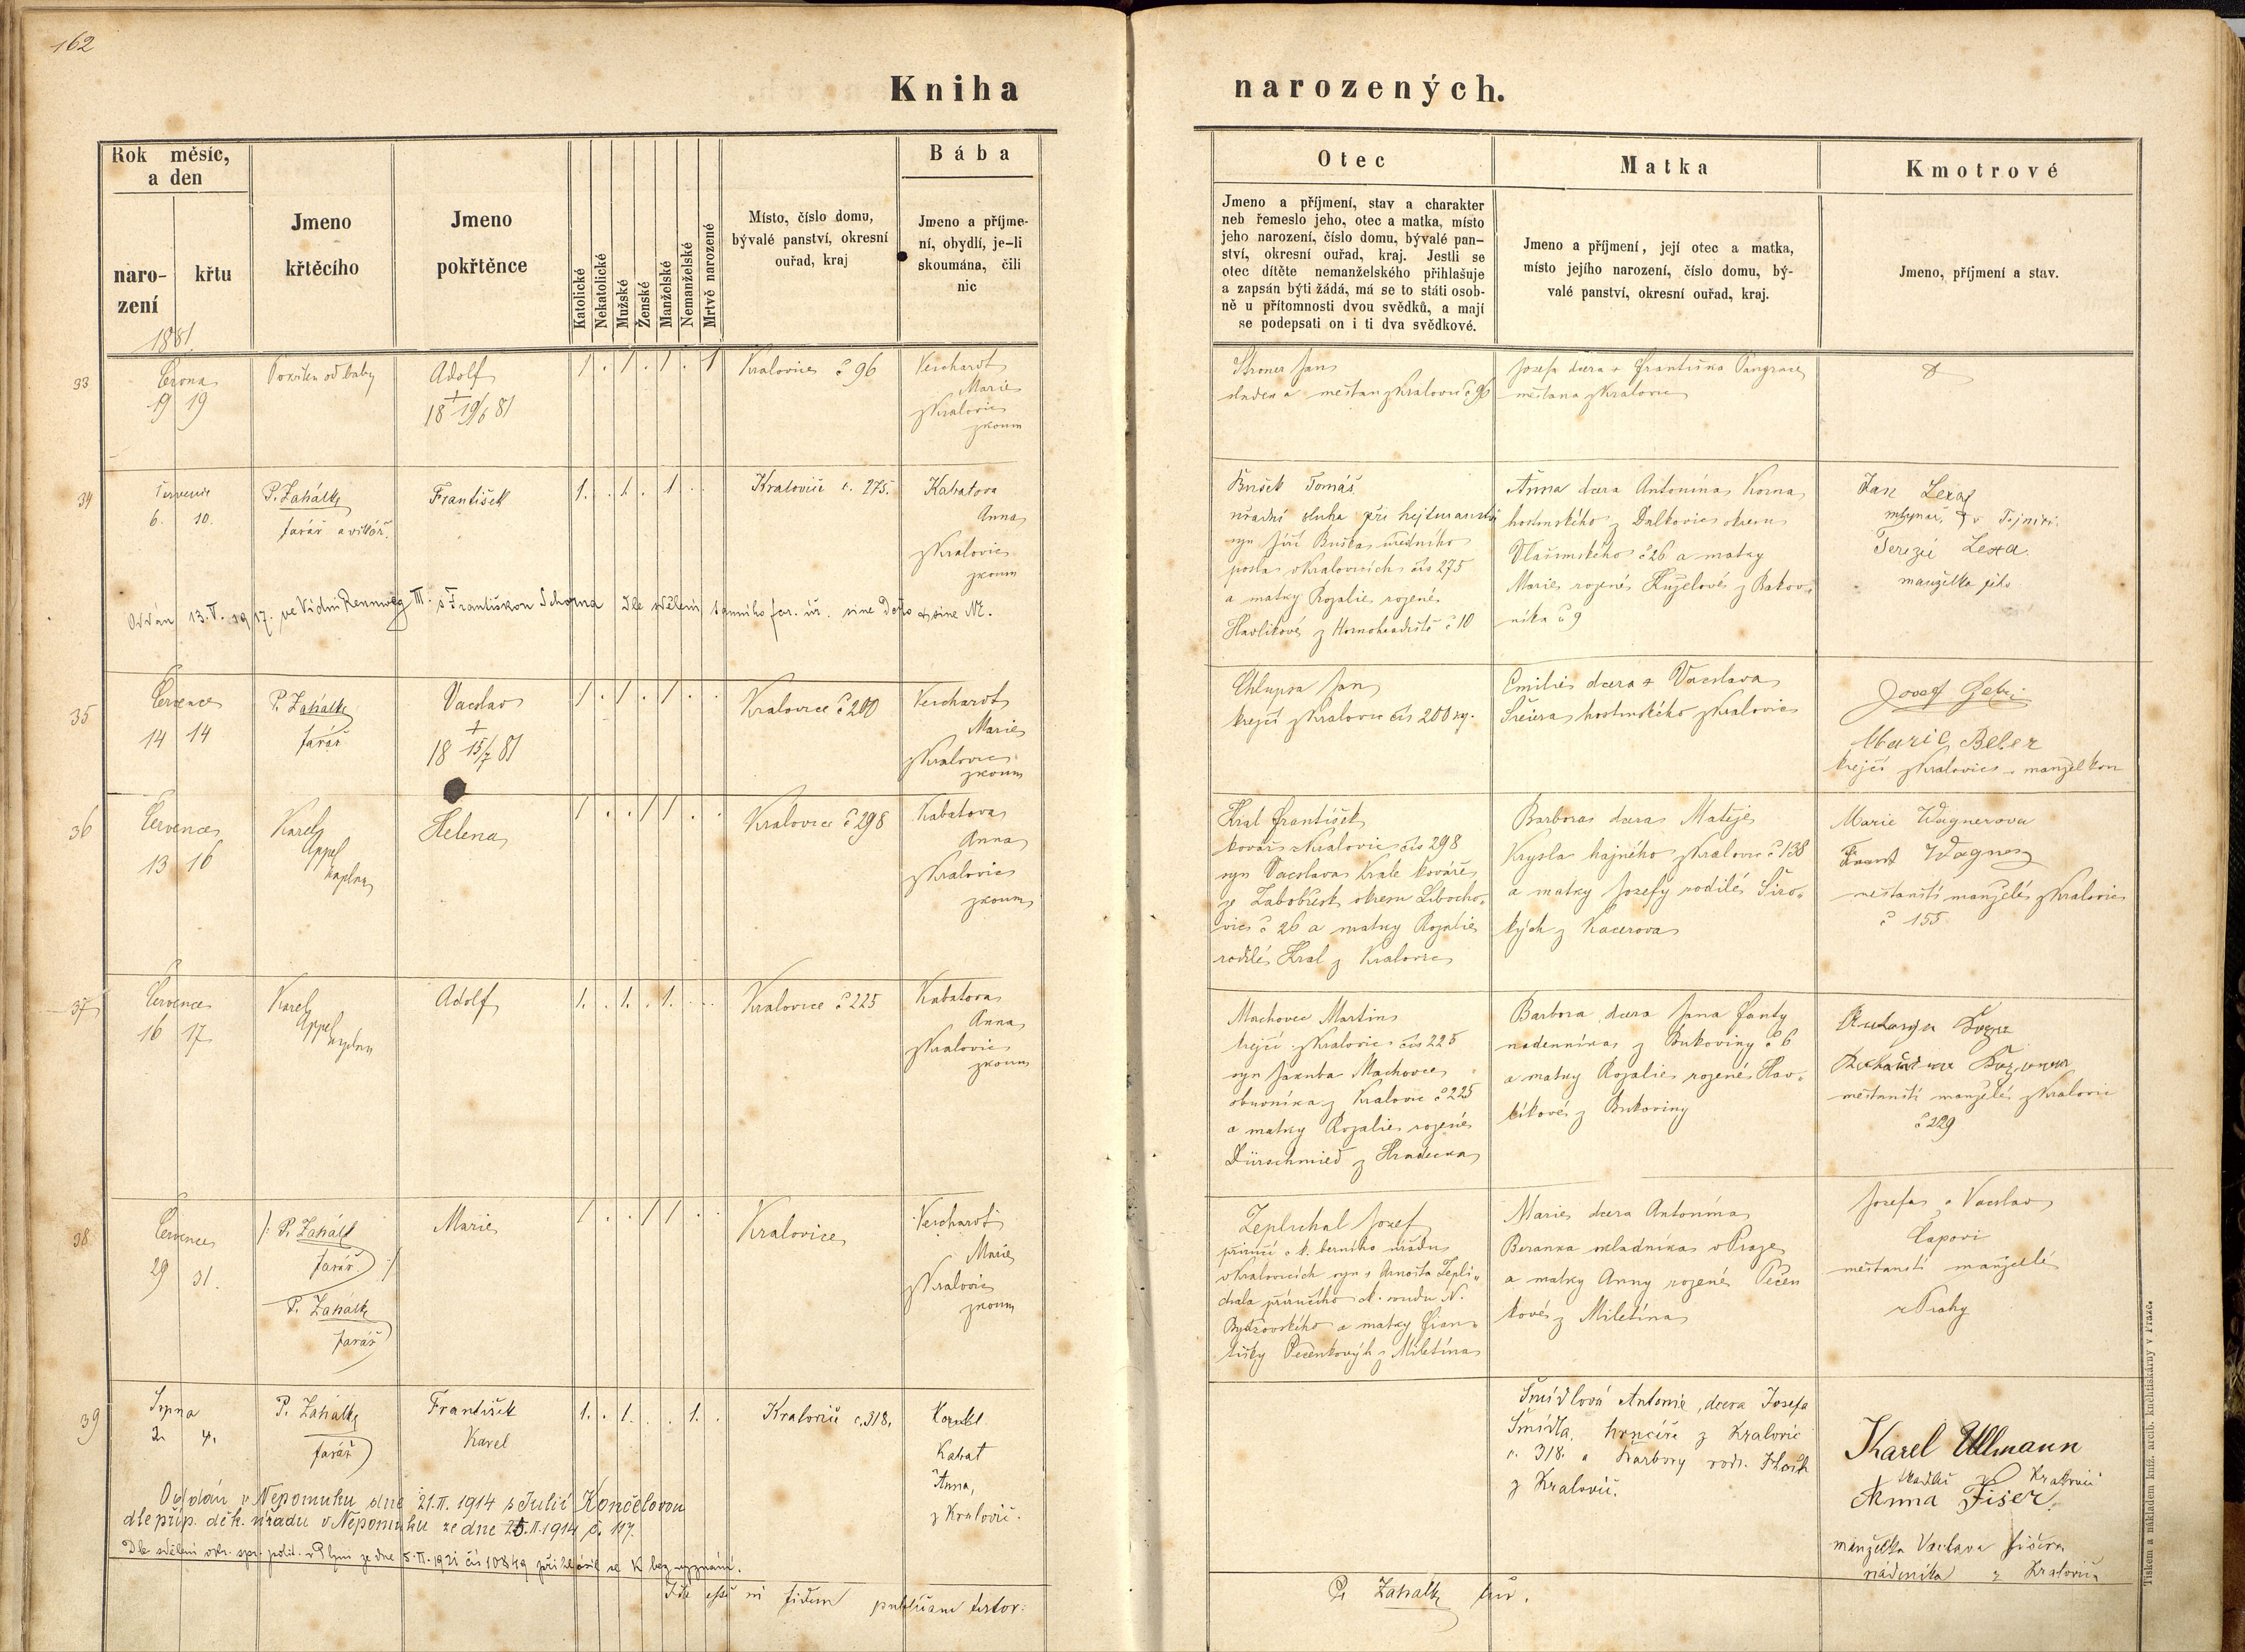 162
Kniha
narozených.
Rok měsíc,
a den
naro-
zení
křtu
1881.
Jmeno
křtěcího
Jmeno
pokřtěnce
Katolické
Nekatolické
Mužské
Ženské
Manželské
Nemanželské
Mrtvě narozené
Místo, číslo domu,
bývalé panství, okresní
ouřad, kraj
Bába
Jmeno a příjme-
ní, obydlí, je-li
skoumána, čili
nic
Otec
Jmeno a příjmení, stav a charakter
neb řemeslo jeho, otec a matka, místo
jeho narození, číslo domu, bývalé pan-
ství, okresní ouřad, kraj. Jestli se
otec dítěte nemanželského přihlašuje
a zapsán býti žádá, má se to státi osob-
ně u přítomnosti dvou svědků, a mají
se podepsati on i ti dva svědkové.
Matka
Jmeno a příjmení, její otec a matka,
místo jejího narození, číslo domu, bý-
valé panství, okresní ouřad, kraj.
Kmotrové
Jmeno, příjmení a stav.
33
Června
19 19
Pokřtěn od baby
Adolf
+
18 19/6 81
1 . 1 . 1 . 1
Kralovice č 96
Marie
z Kralovic
zkoum
Jan
a měštan z Kralovic č 96
Josefa dcera + Františka Pangrace
měštana z Kralovic
34
Července
6. 10.
P. Zahálka
farář a vikář.
František
1. . 1. . 1 . .
Kralovic č. 275.
Kabatova
Anna
z Kralovic
zkoum
Bušek Tomáš
úřadní sluha při hejtmanství
syn Jiří Buška úředního
posla v Kralovicích čís 275
a matky Rozalie rozené
Havlíkové z Hornohradiště č 10
Anna dcera Antonína Korna
hostinského z Dalkovic okresu
Vlašimského č 26 a matky
Marie rozené Kuželové z Rakov-
níka č 9
Jan Lexa
mlynář v Tejnici.
Terezie Lexa
manželka jeho
Oddán 13. V. 1917. ve Vídni Rennweg III. s Františkou Schorna dle sdělení tamního far. úř. sine Dato & sine Nr.
35
Července
14 14
P. Zahálka
farář
Vacslav
+
18 15/7 81
1 . 1 . 1 . .
Kralovice č 200
Marie
z Kralovic
zkoum
Chlupsa Jan
krejčí z Kralovic čís 200
Emilie dcera + Vacslava
hostinského z Kralovic
Josef
Marie
krejčí z Kralovic s manželkou
36
Července
13 16
Karel
Appel
kaplan
Helena
1 . . 1 1 . .
Kralovice č 298
Kabatova
Anna
z Kralovic
zkoum
Král František
kovář z Kralovic čís 298
syn Vacslava Krale kováře
ze okresu Libocho-
vic č 26 a matky Rozalie
rodilé Kral z Kralovic
Barbora dcera Matěje
Krysla hajného z Kralovic č 138
a matky Josefy rodilé Širo-
kých z Kacerova
Marie Wagnerova
Frant Wagner
měštanští manželé z Kralovic
č 155
37
Července
16 17
Karel
Appel
kaplan
Adolf
1. . 1. . 1. . .
Kralovice č 225
Kabatova
Anna
z Kralovic
zkoum
Machovec Martin
krejčí z Kralovic čís 225
syn Jakuba Machovce
obuvníka z Kralovic č 225
a matky Rozalie rozené
Dürschmied z Hradecka
Barbora dcera Jana Fanty
nádenníka z Bukoviny č 6
a matky Rozalie rozené Hav-
líkové z Bukoviny
měštanští manželé z Kralovic
č 229
38
Července
29 31.
/: P. Zahálka
farář :/
P. Zahálka
farář
Marie
1 . . 1 1 . .
Kralovice
Marie
z Kralovic
zkoum
Zeplichal Josef
příručí c. k. berního úřadu
v Kralovicích syn + Arnošta Zepli-
chala příručího
Bydžovského a matky Fran-
tišky Pečenkových z Miletína
Marie dcera Antonína
Beranka skladníka v Praze
a matky Anny rozené Pečen
kové z Miletína
Josefa a Vacslav
Čapovi
měštanští manželé
z Prahy
39
Srpna
2. 4.
P. Zahálka
farář
František
Karel
1. . 1. . . 1. .
Kralovic č. 318.
Kabat
Anna,
z Kralovic.
Šmídlová Antonie, dcera Josefa
Šmídla, hrnčíře z Kralovic
č. 318. a Barbory rod.
z Kralovic.
Karel Ullmann
z Kralovic
Anna Fišer,
manželka Vaclava Fišera
nádeníka z Kralovic
Oddán v Nepomuku dne 21. II. 1914 s Julií Končelovou
dle příp. děk. úřadu v Nepomuku ze dne 25. II. 1914 č. 117.
Dle sdělení okr. spr. polit. v Plzni ze dne 5. II. 1921 čís 10849 přihlásil se k bez vyznání.
in fidem publicam testor:
P. Zahálka far.
Tiskem a nákladem kníž. arcib. knihtiskárny v Praze.